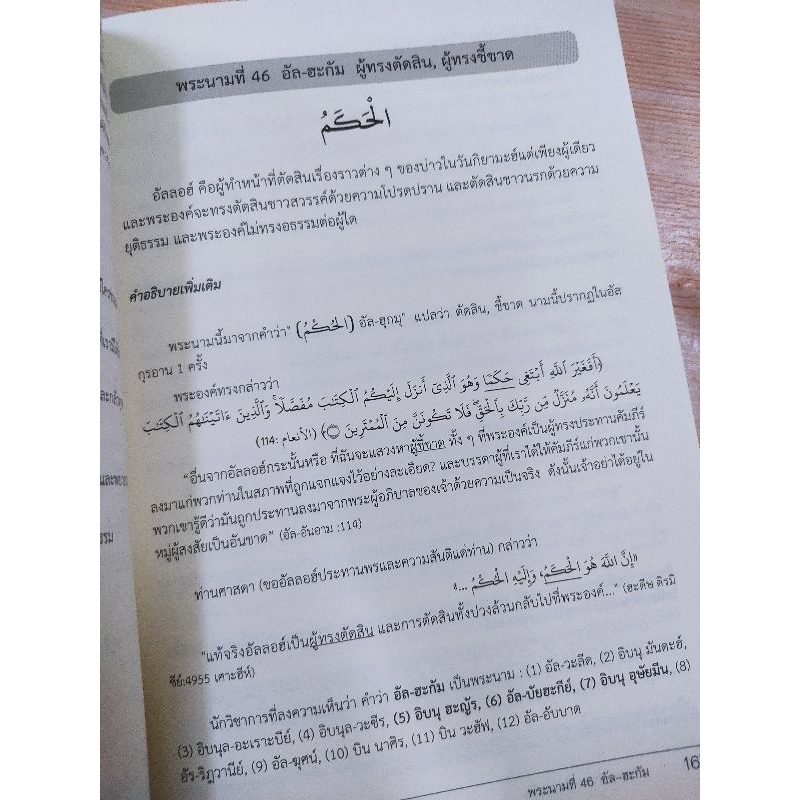 พระนามที่ 46 อัล-ฮะกัม ผู้ทรงตัดสิน, ผู้ทรงชี้ขาด
الْحَكَمُ
อัลลอฮ์ คือผู้ทำหน้าที่ตัดสินเรื่องราวต่าง ๆ ของบ่าวในวันกิยามะฮ์แต่เพียงผู้เดียว
และพระองค์จะทรงตัดสินชาวสวรรค์ด้วยความโปรดปราน และตัดสินชาวนรกด้วยความ
ยุติธรรม และพระองค์ไม่ทรงอธรรมต่อผู้ใด
คำอธิบายเพิ่มเติม
พระนามนี้มาจากคำว่า" (الحُكْمُ) อัล-ฮุกมุ" แปลว่า ตัดสิน, ชี้ขาด นามนี้ปรากฏในอัล
กุรอาน 1 ครั้ง
พระองค์ทรงกล่าวว่า
﴿أَفَغَيْرَ ٱللَّهِ أَبْتَغِى حَكَمًا وَهُوَ ٱلَّذِىٓ أَنزَلَ إِلَيْكُمُ ٱلْكِتَٰبَ مُفَصَّلًا ۚ وَٱلَّذِينَ ءَاتَيْنَٰهُمُ ٱلْكِتَٰبَ
يَعْلَمُونَ أَنَّهُۥ مُنَزَّلٌ مِّن رَّبِّكَ بِٱلْحَقِّ ۖ فَلَا تَكُونَنَّ مِنَ ٱلْمُمْتَرِينَ﴾ (الأنعام :114)
"อื่นจากอัลลอฮ์กระนั้นหรือ ที่ฉันจะแสวงหาผู้ชี้ขาด ทั้ง ๆ ที่พระองค์เป็นผู้ทรงประทานคัมภีร์
ลงมาแก่พวกท่านในสภาพที่ถูกแจกแจงไว้อย่างละเอียด? และบรรดาผู้ที่เราได้ให้คัมภีร์แก่พวกเขานั้น
พวกเขารู้ดีว่ามันถูกประทานลงมาจากพระผู้อภิบาลของเจ้าด้วยความเป็นจริง ดังนั้นเจ้าอย่าได้อยู่ใน
หมู่ผู้สงสัยเป็นอันขาด" (อัล-อันอาม :114)
ท่านศาสดา (ขออัลลอฮ์ประทานพรและความสันติแด่ท่าน) กล่าวว่า
«إِنَّ اللَّهَ هُوَ الْحَكَمُ، وَإِلَيْهِ الْحُكْمُ ...»
"แท้จริงอัลลอฮ์เป็นผู้ทรงตัดสิน และการตัดสินทั้งปวงล้วนกลับไปที่พระองค์..." (ฮะดีษ ติรมิ
ซีย์:4955 เศาะฮีห์)
นักวิชาการที่ลงความเห็นว่า คำว่า อัล-ฮะกัม เป็นพระนาม : (1) อัล-วะลีด, (2) อิบนุ มันดะฮ์,
(3) อิบนุล-อะเราะบีย์, (4) อิบนุล-วะซีร, (5) อิบนุ ฮะญัร, (6) อัล-บัยฮะกีย์, (7) อิบนุ อุษัยมีน, (8)
อัร-ริฎวานีย์, (9) อัล-ฆุศน์, (10) บิน นาศิร, (11) บิน วะฮัฟ, (12) อัล-อับบาด
พระนามที่ 46 อัล-ฮะกัม 16